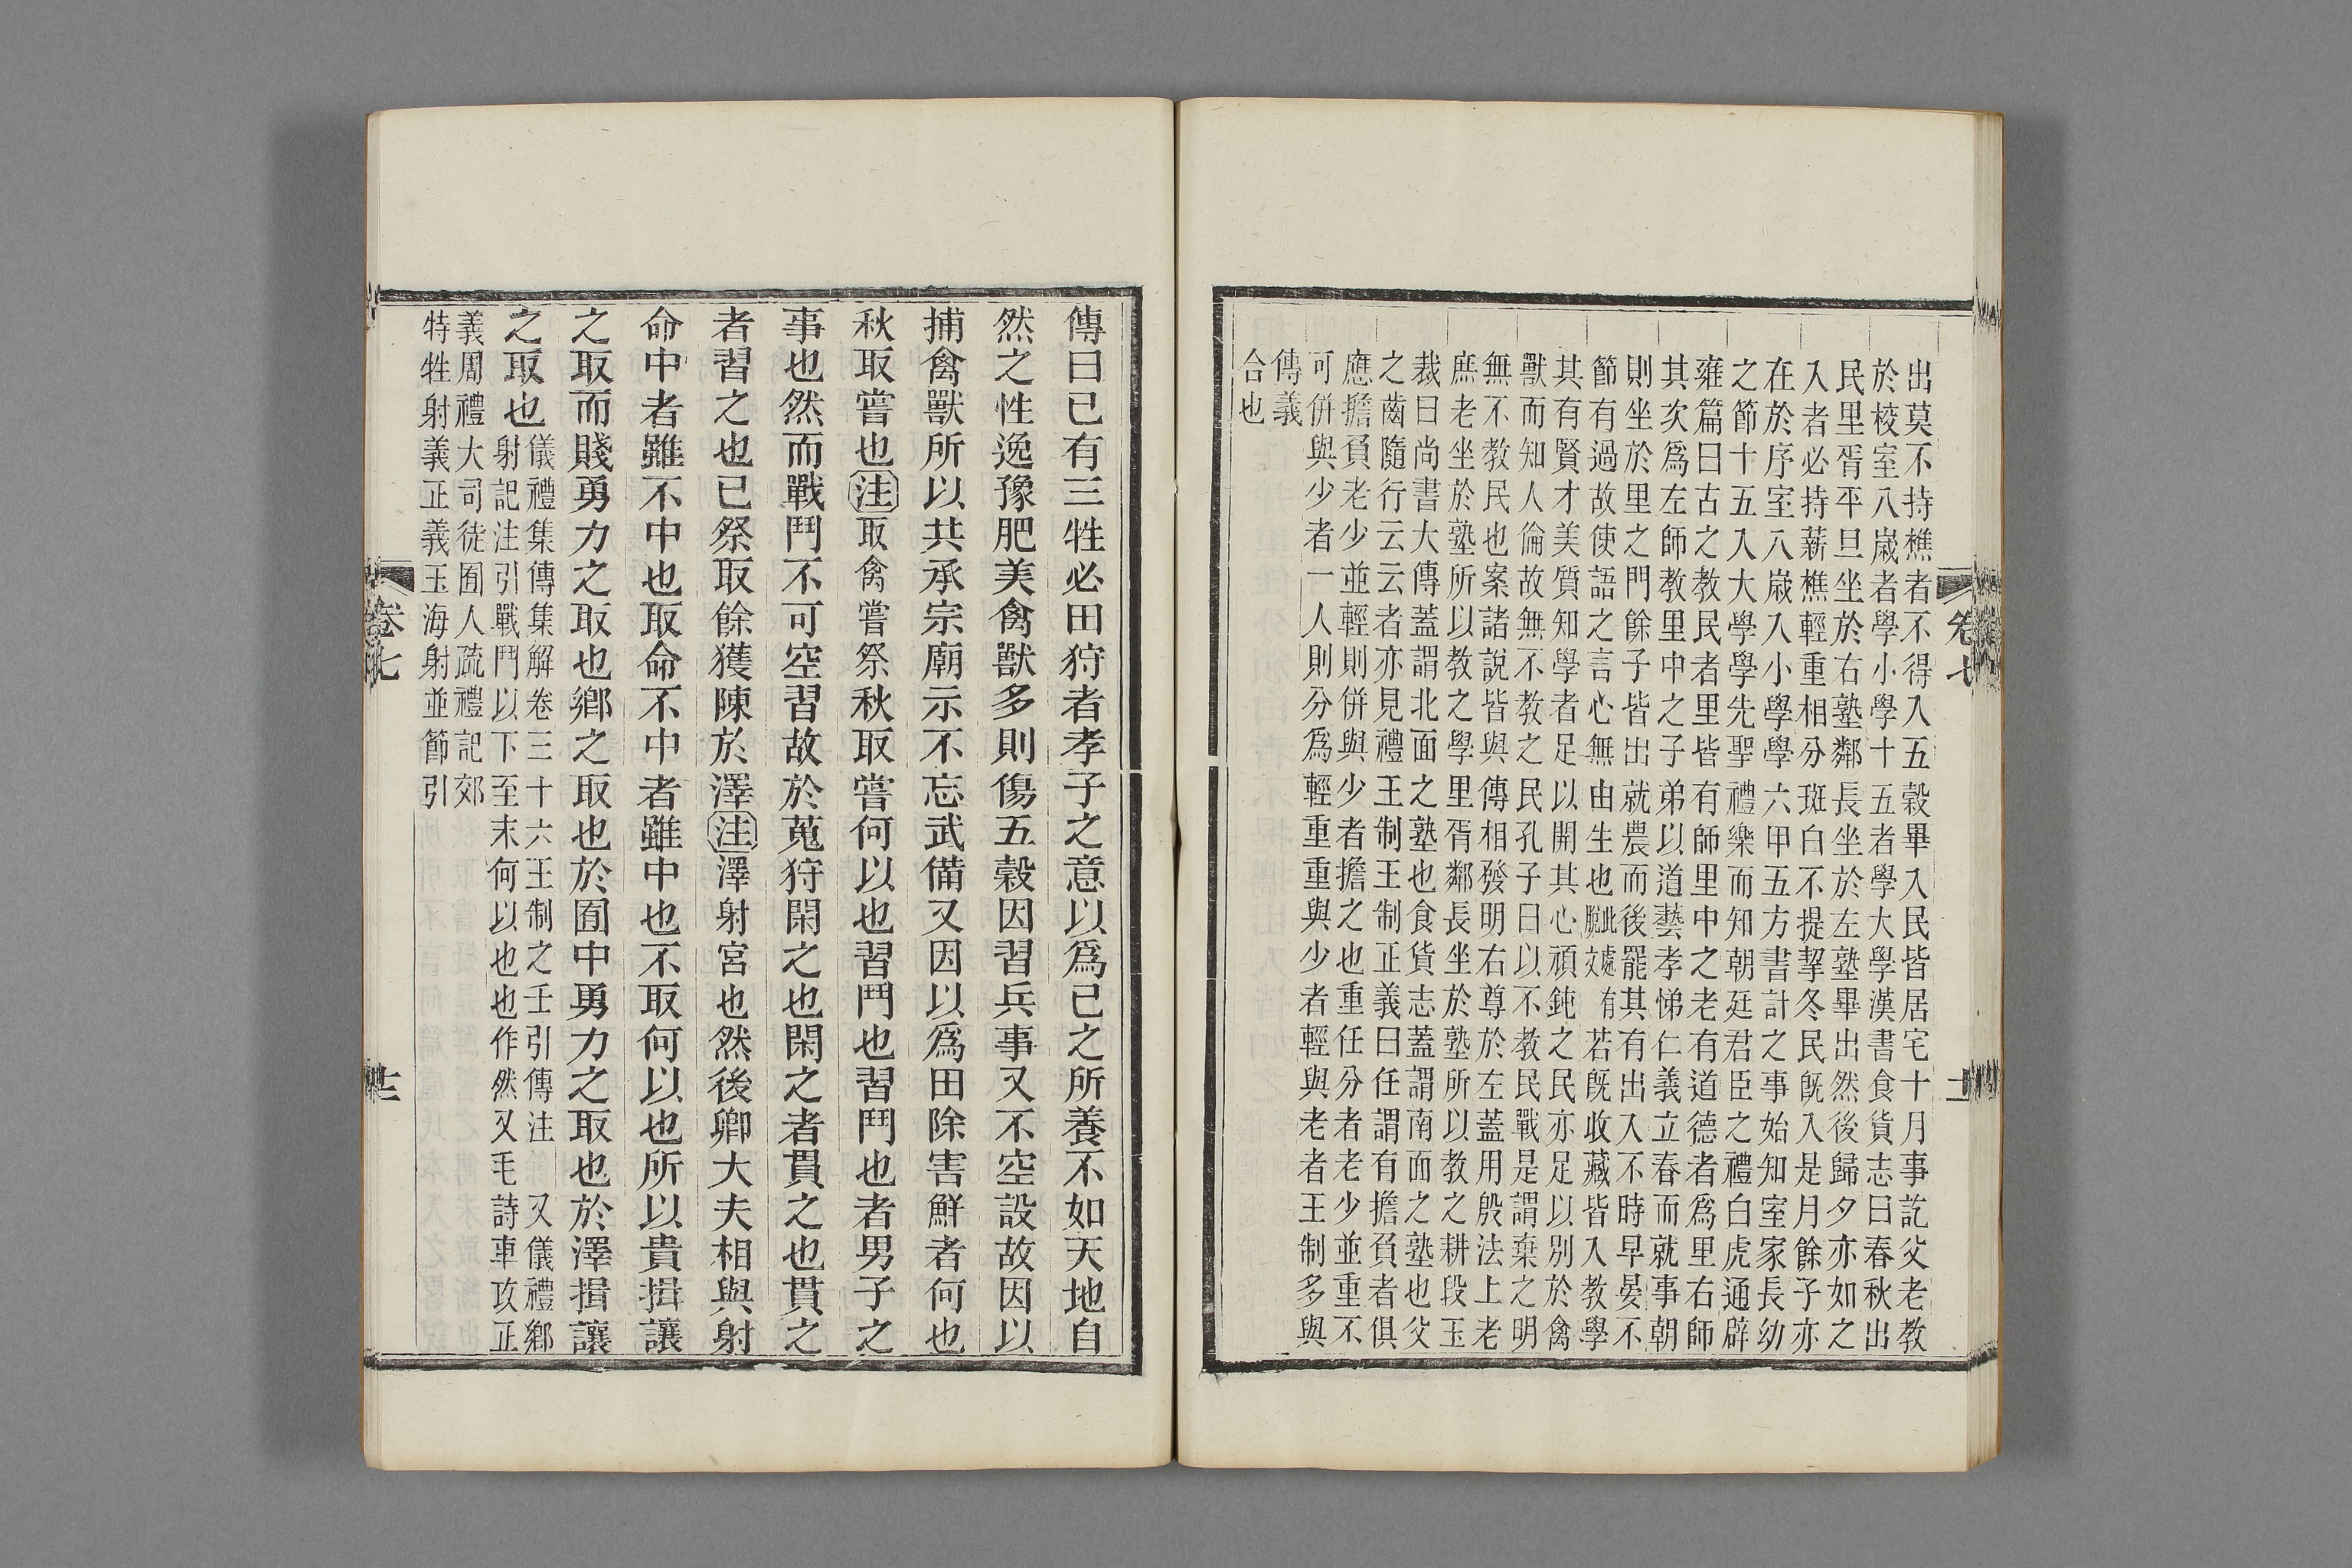 出莫不持樵者不得入五穀畢入民皆居宅十月事訖父老教
於棱室八歲者學小學十五者學大學漢書食貨志曰春秋出
民里胥平旦坐於右塾鄰長坐於左塾畢出然後歸夕亦如之
入者必持薪樵輕重相分斑白不提挈冬民旣入是月餘子亦
在於序室八歲入小學學六甲五方書計之事始知室家長幼
之節十五入大學學先聖禮樂而知朝廷君臣之禮白虎通辟
雍篇曰古之教民者里皆有師里中之老有道德者爲里右師
其次爲左師教里中之子弟以道藝孝悌仁義立春而就事朝
則坐於里之門餘子皆出就農而後罷其有出入不時早晏不
節有過故使語之言心無由生也此處有脫文若旣收藏皆入教學
其有賢才美質知學者足以開其心頑鈍之民亦足以別於禽
獸而知人倫故無不教之民孔子曰以不教民戰是謂棄之明
無不教民也案諸說皆與傳相發明右尊於左蓋用殷法上老
庶老坐於塾所以教之學里胥鄰長坐於塾所以教之耕段玉
裁曰尚書大傳蓋謂北面之塾也食貨志蓋謂南面之塾也父
之齒隨行云云者亦見禮王制王制正義曰任謂有擔負者俱
應擔負老少並輕則併與少者擔之也重任分者老少並重不
可併與少者一人則分爲輕重重與少者輕與老者王制多與
傳義
合也
卷七
十一
傳曰已有三牲必田狩者孝子之意以爲己之所養不如天地自
然之性逸豫肥美禽獸多則傷五穀因習兵事又不空設故因以
捕禽獸所以共承宗廟示不忘武備又因以爲田除害鮮者何也
秋取嘗也注取禽嘗祭秋取嘗何以也習鬥也習鬥也者男子之
事也然而戰鬥不可空習故於蒐狩閑之也閑之者貫之也貫之
者習之也已祭取餘獲陳於澤注澤射宮也然後卿大夫相與射
命中者雖不中也取命不中者雖中也不取何以也所以貴揖讓
之取而賤勇力之取也鄉之取也於囿中勇力之取也於澤揖讓
之取也儀禮集傳集解卷三十六王制之壬引傳注又儀禮鄉
射記注引戰鬥以下至末何以也也作然又毛詩車攻正
義周禮大司徒囿人疏禮記郊
特牲射義正義玉海射並節引
卷七
十二